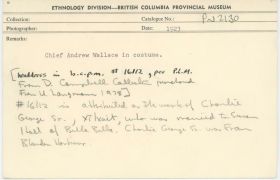 ETHNOLOGY DIVISION—BRITISH COLUMBIA PROVINCIAL MUSEUM
Collection Catalogue No.: PN 2130
Photographer: Date: 1927
Remarks:
Chief Andrew Wallace in costume.
[Headdress in b.c.p.m. # 16112, per P.L.M.
From D. Campbell Collection purchased
from U. Langmann 1978]
#16112 is attributed as the work of Charlie
George Sr., Xi'xait, who was married to Susan
Hall of Bella Bella. Charlie George Sr. was from
Blunden Harbour.